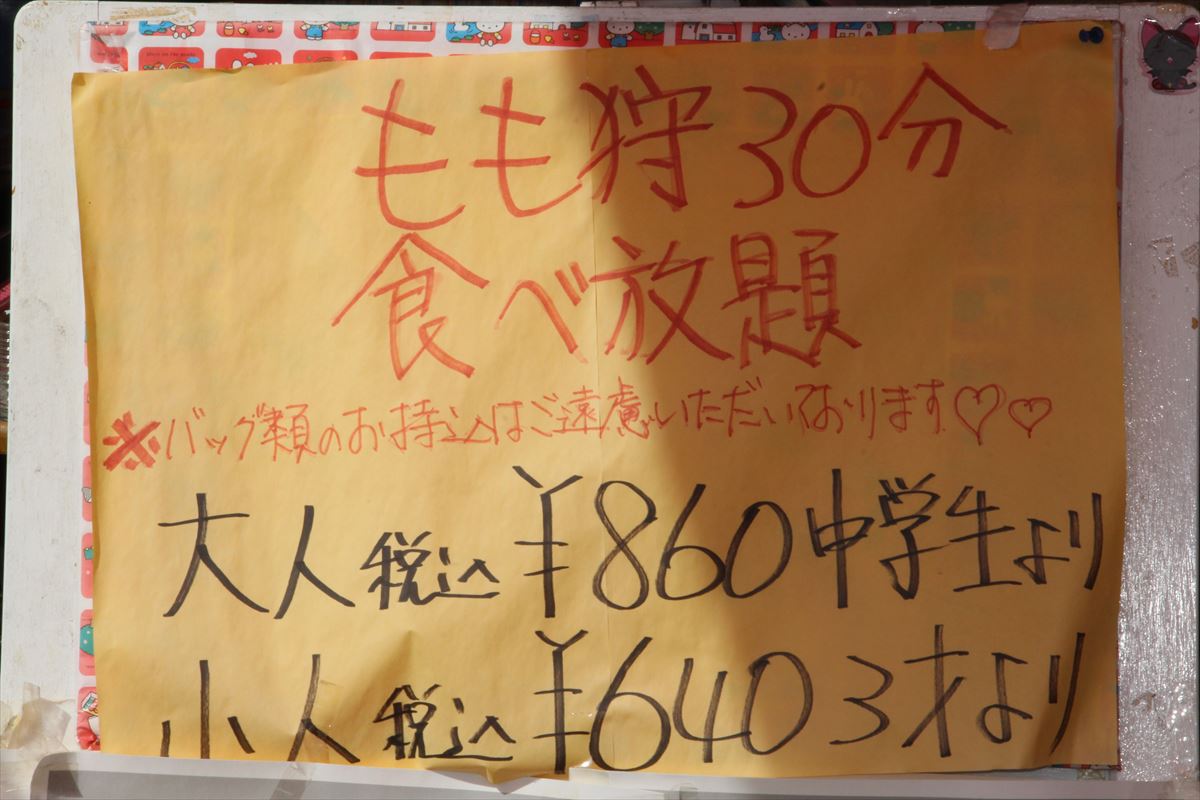 もも狩30分
食べ放題
※バッグ類のお持込はご遠慮いただいております♡♡
大人税込¥860中学生より
小人税込¥640 3才より